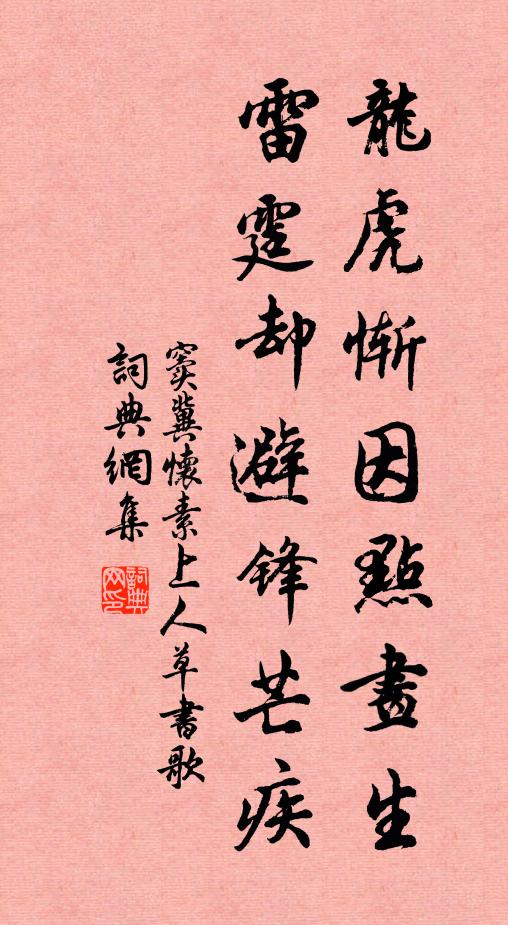 龍虎慚因點畫生
雷霆却避鋒芒疾
竇冀懷素上人草書歌
詞典網集
詞典网印